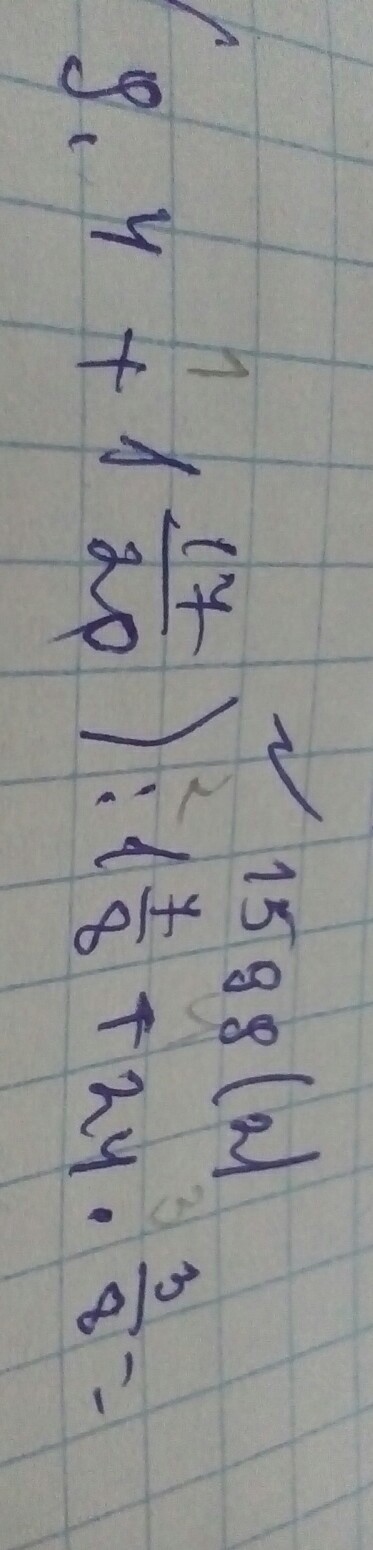 √ 1598 (2)
9,4 + 1 17/20 ) : 1 7/8 + 24 · 3/8 =
1 2 3